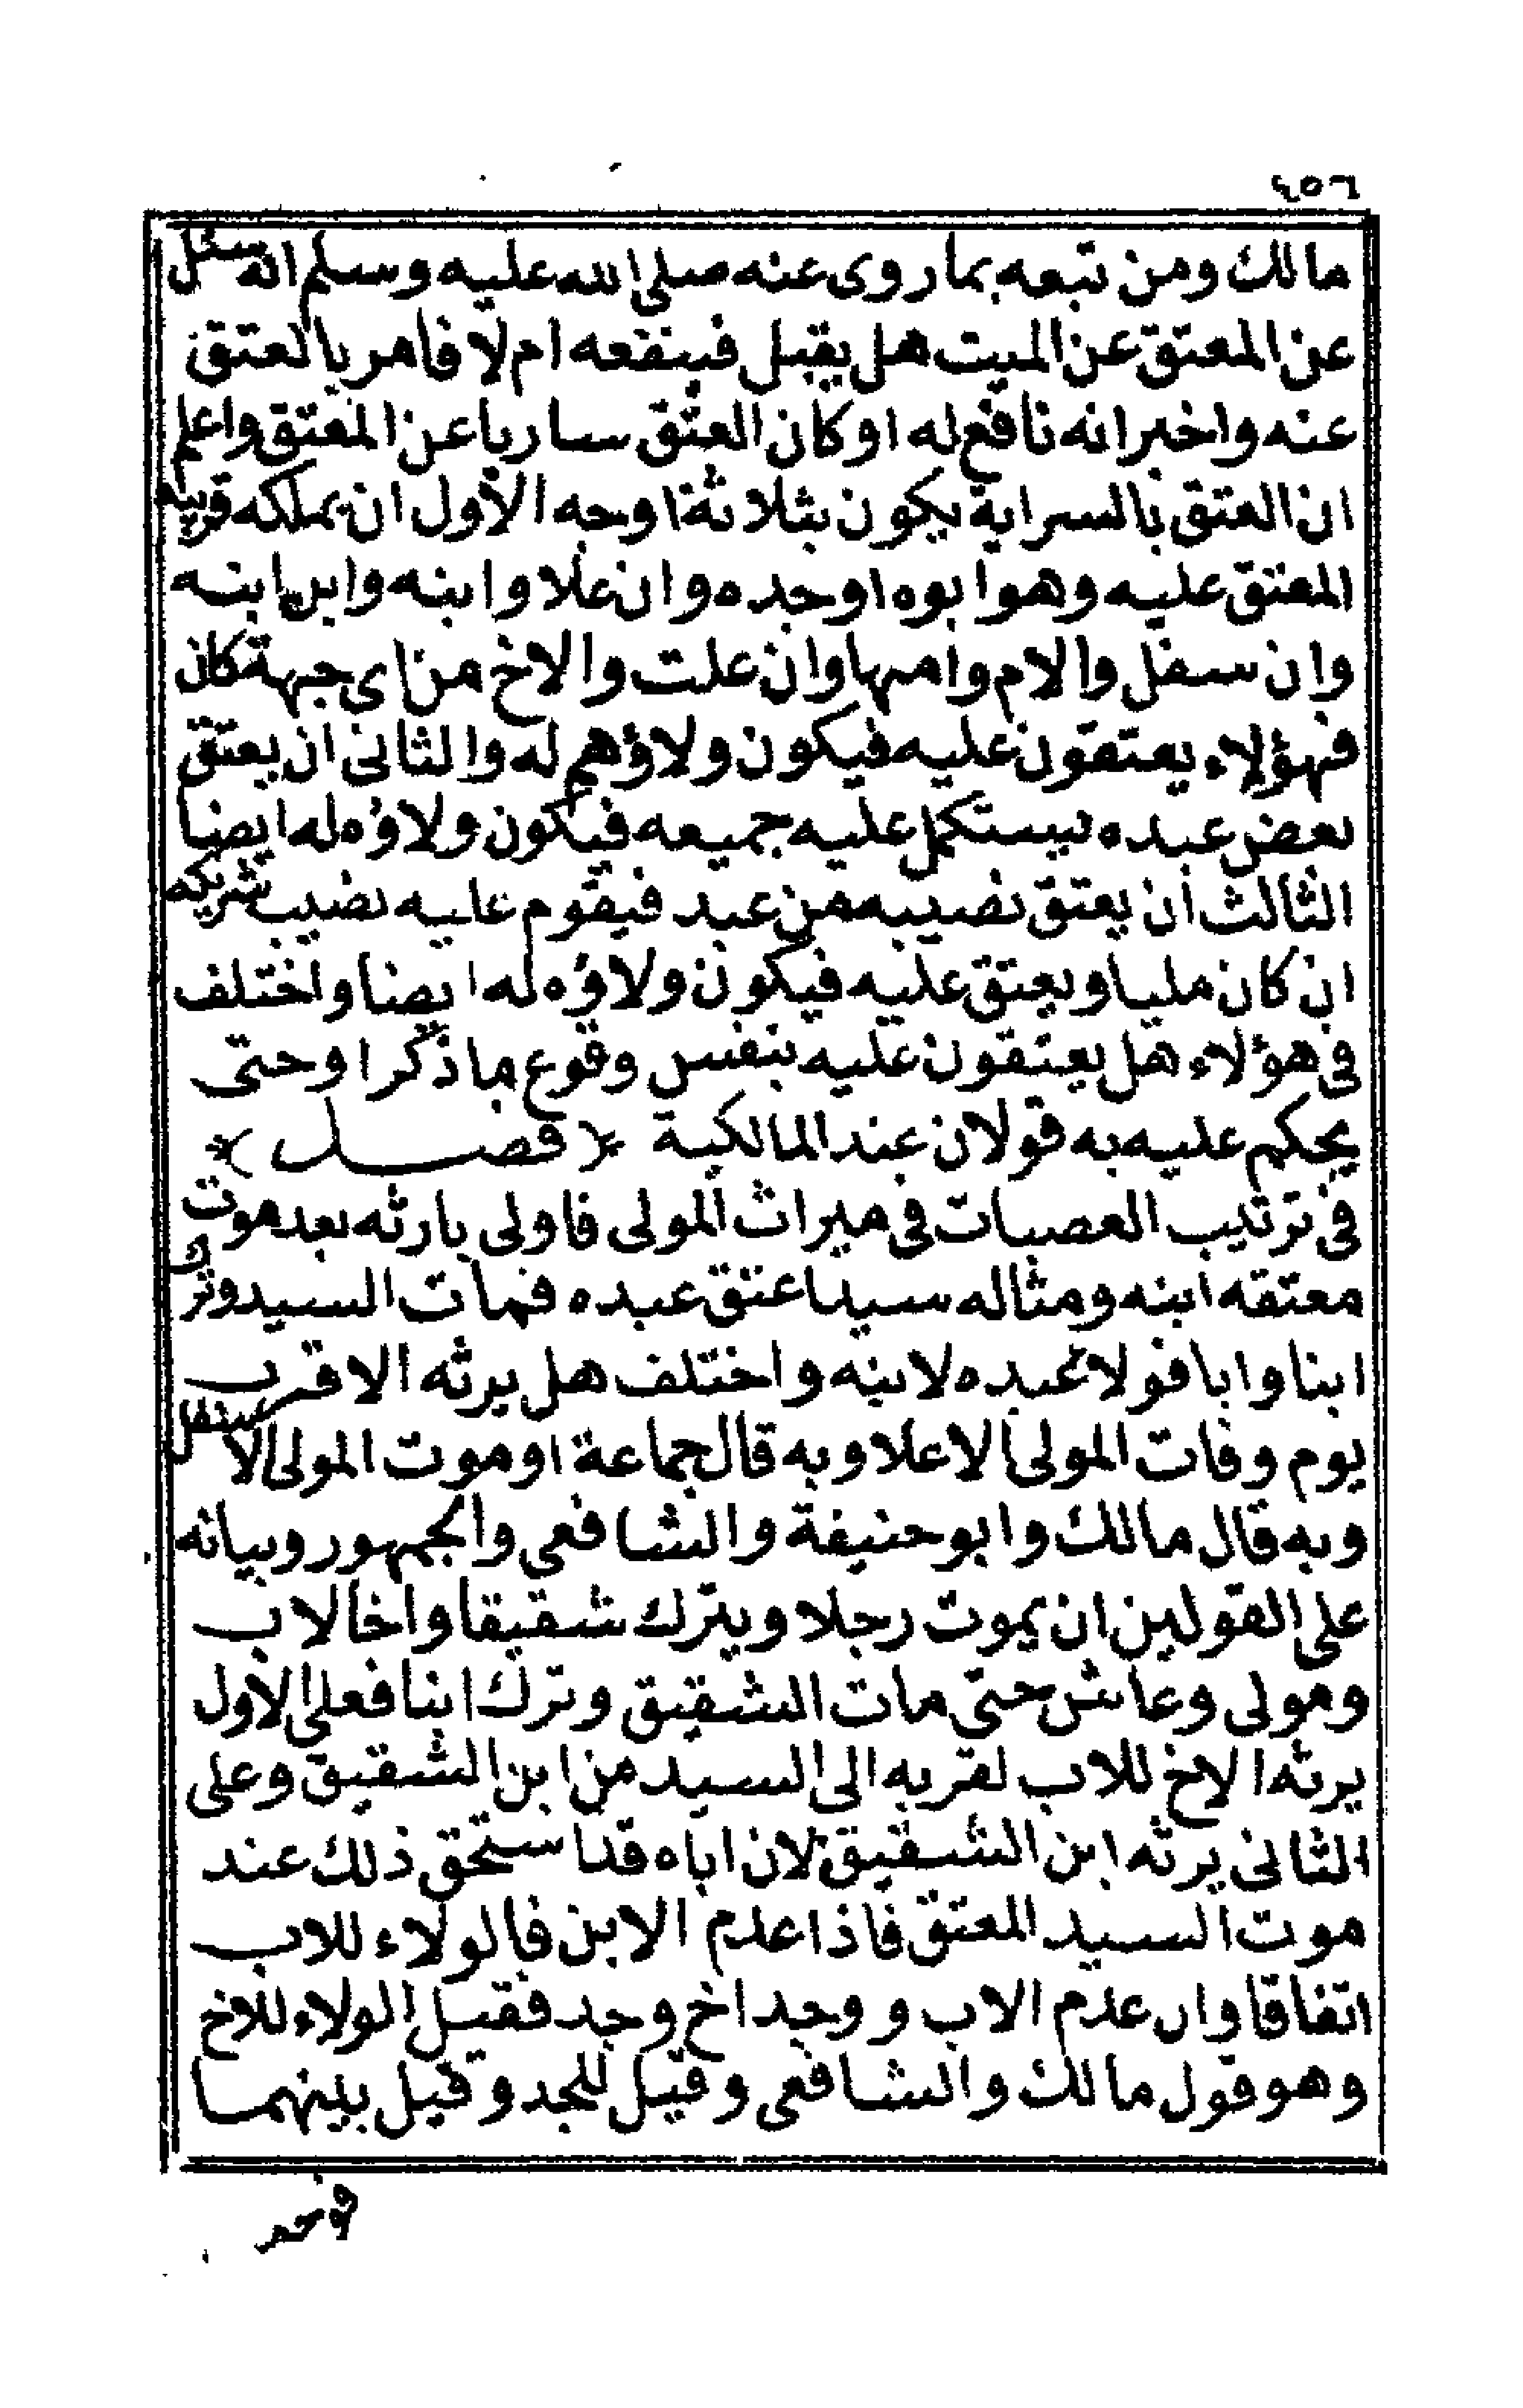 ٤٥٦
مالك ومن تبعه بما روى عنه صلى الله عليه وسلم انه سئل
عن المعتق عن الميت هل يقبل فينفعه ام لا فامر بالعتق
عنه واخبر انه نافع له او كان العتق ساريا عن المعتق واعلم
ان العتق بالسراية يكون بثلاثة اوجه الاول ان يملكه قريبه
المعتق عليه وهو ابوه او جده وان علا وابنه وابن ابنه
وان سفل والام وامها وان علت والاخ من اى جهة كان
فهؤلاء يعتقون عليه فيكون ولاؤهم له والثانى ان يعتق
بعض عبده يستكمل عليه جميعه فيكون ولاؤه له ايضا
الثالث ان يعتق نصيبه من عبد فيقوم عليه نصيب شريكه
ان كان مليا ويعتق عليه فيكون ولاؤه له ايضا واختلف
فى هؤلاء هل يعتقون عليه بنفس وقوع ما ذكر او حتى
يحكم عليه به قولان عند المالكية * (فصل) *
فى ترتيب العصبات فى ميراث المولى فاولى بارثه بعد موت
معتقه ابنه ومثاله سيد اعتق عبده فمات السيد وترك
ابنا وابا فولاء عبده لابنه واختلف هل يرثه الاقرب
يوم وفات المولى الاعلا وبه قال جماعة او موت المولى الاسفل
وبه قال مالك وابو حنيفة والشافعى والجمهور وبيانه
على القولين ان يموت رجلا ويترك شقيقا واخا لاب
ومولى وعاش حتى مات الشقيق وترك ابنا فعلى الاول
يرثه الاخ للاب لقربه الى السيد من ابن الشقيق وعلى
الثانى يرثه ابن الشقيق لان اباه قد استحق ذلك عند
موت السيد المعتق فاذا عدم الابن فالولاء للاب
اتفاقا وان عدم الاب ووجد اخ وجد فقيل الولاء للاخ
وهو قول مالك والشافعى وقيل للجد وقيل بينهما